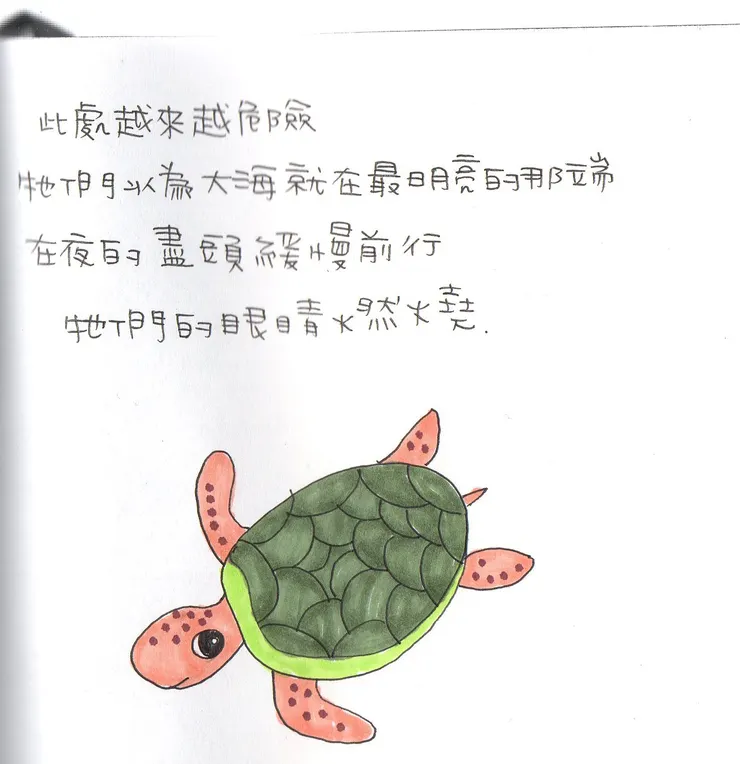 此處越來越危險
牠們以為大海就在最明亮的那端
在夜的盡頭緩慢前行
牠們的眼睛燃燒.